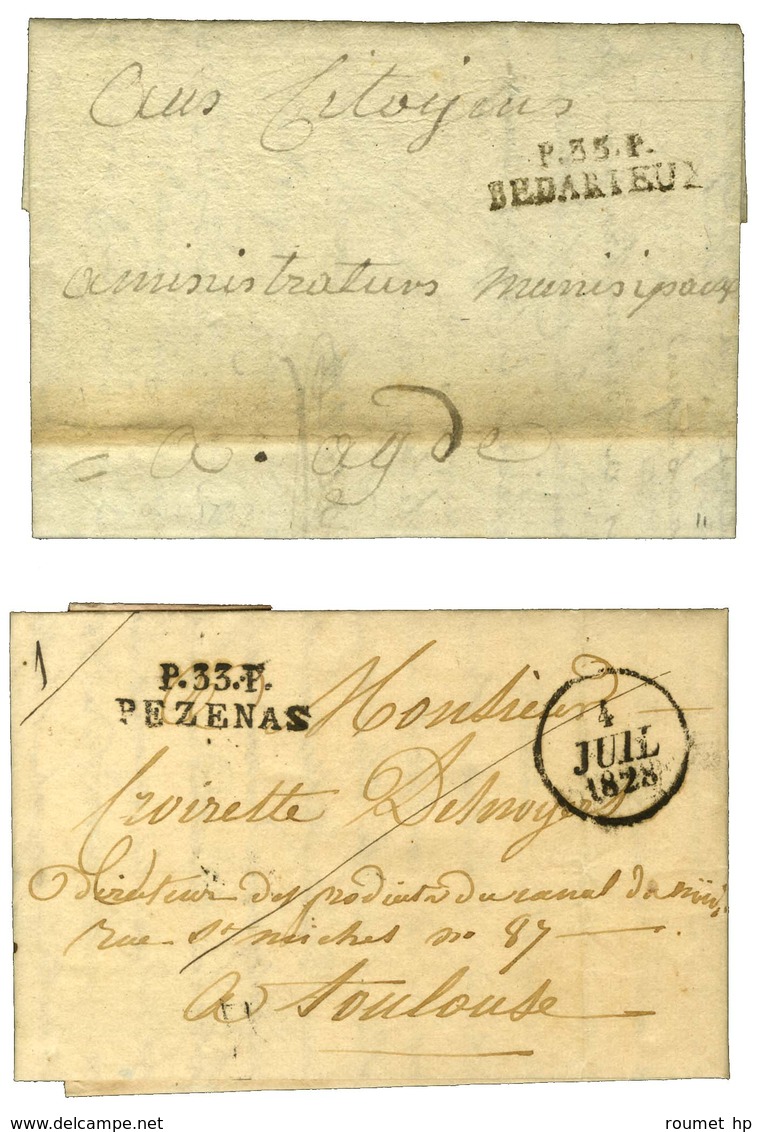 aus Citoyens
P.33.P.
BEDARIEUX
aministraturs munisipaux
= a. agde
1
P.33.P.
PEZENAS
a Monsieur
4
JUIL
1828
Croirette Desnoyers
directeur des produits du canal du midi
rue St michel no 87
a Toulouse
roumet hp